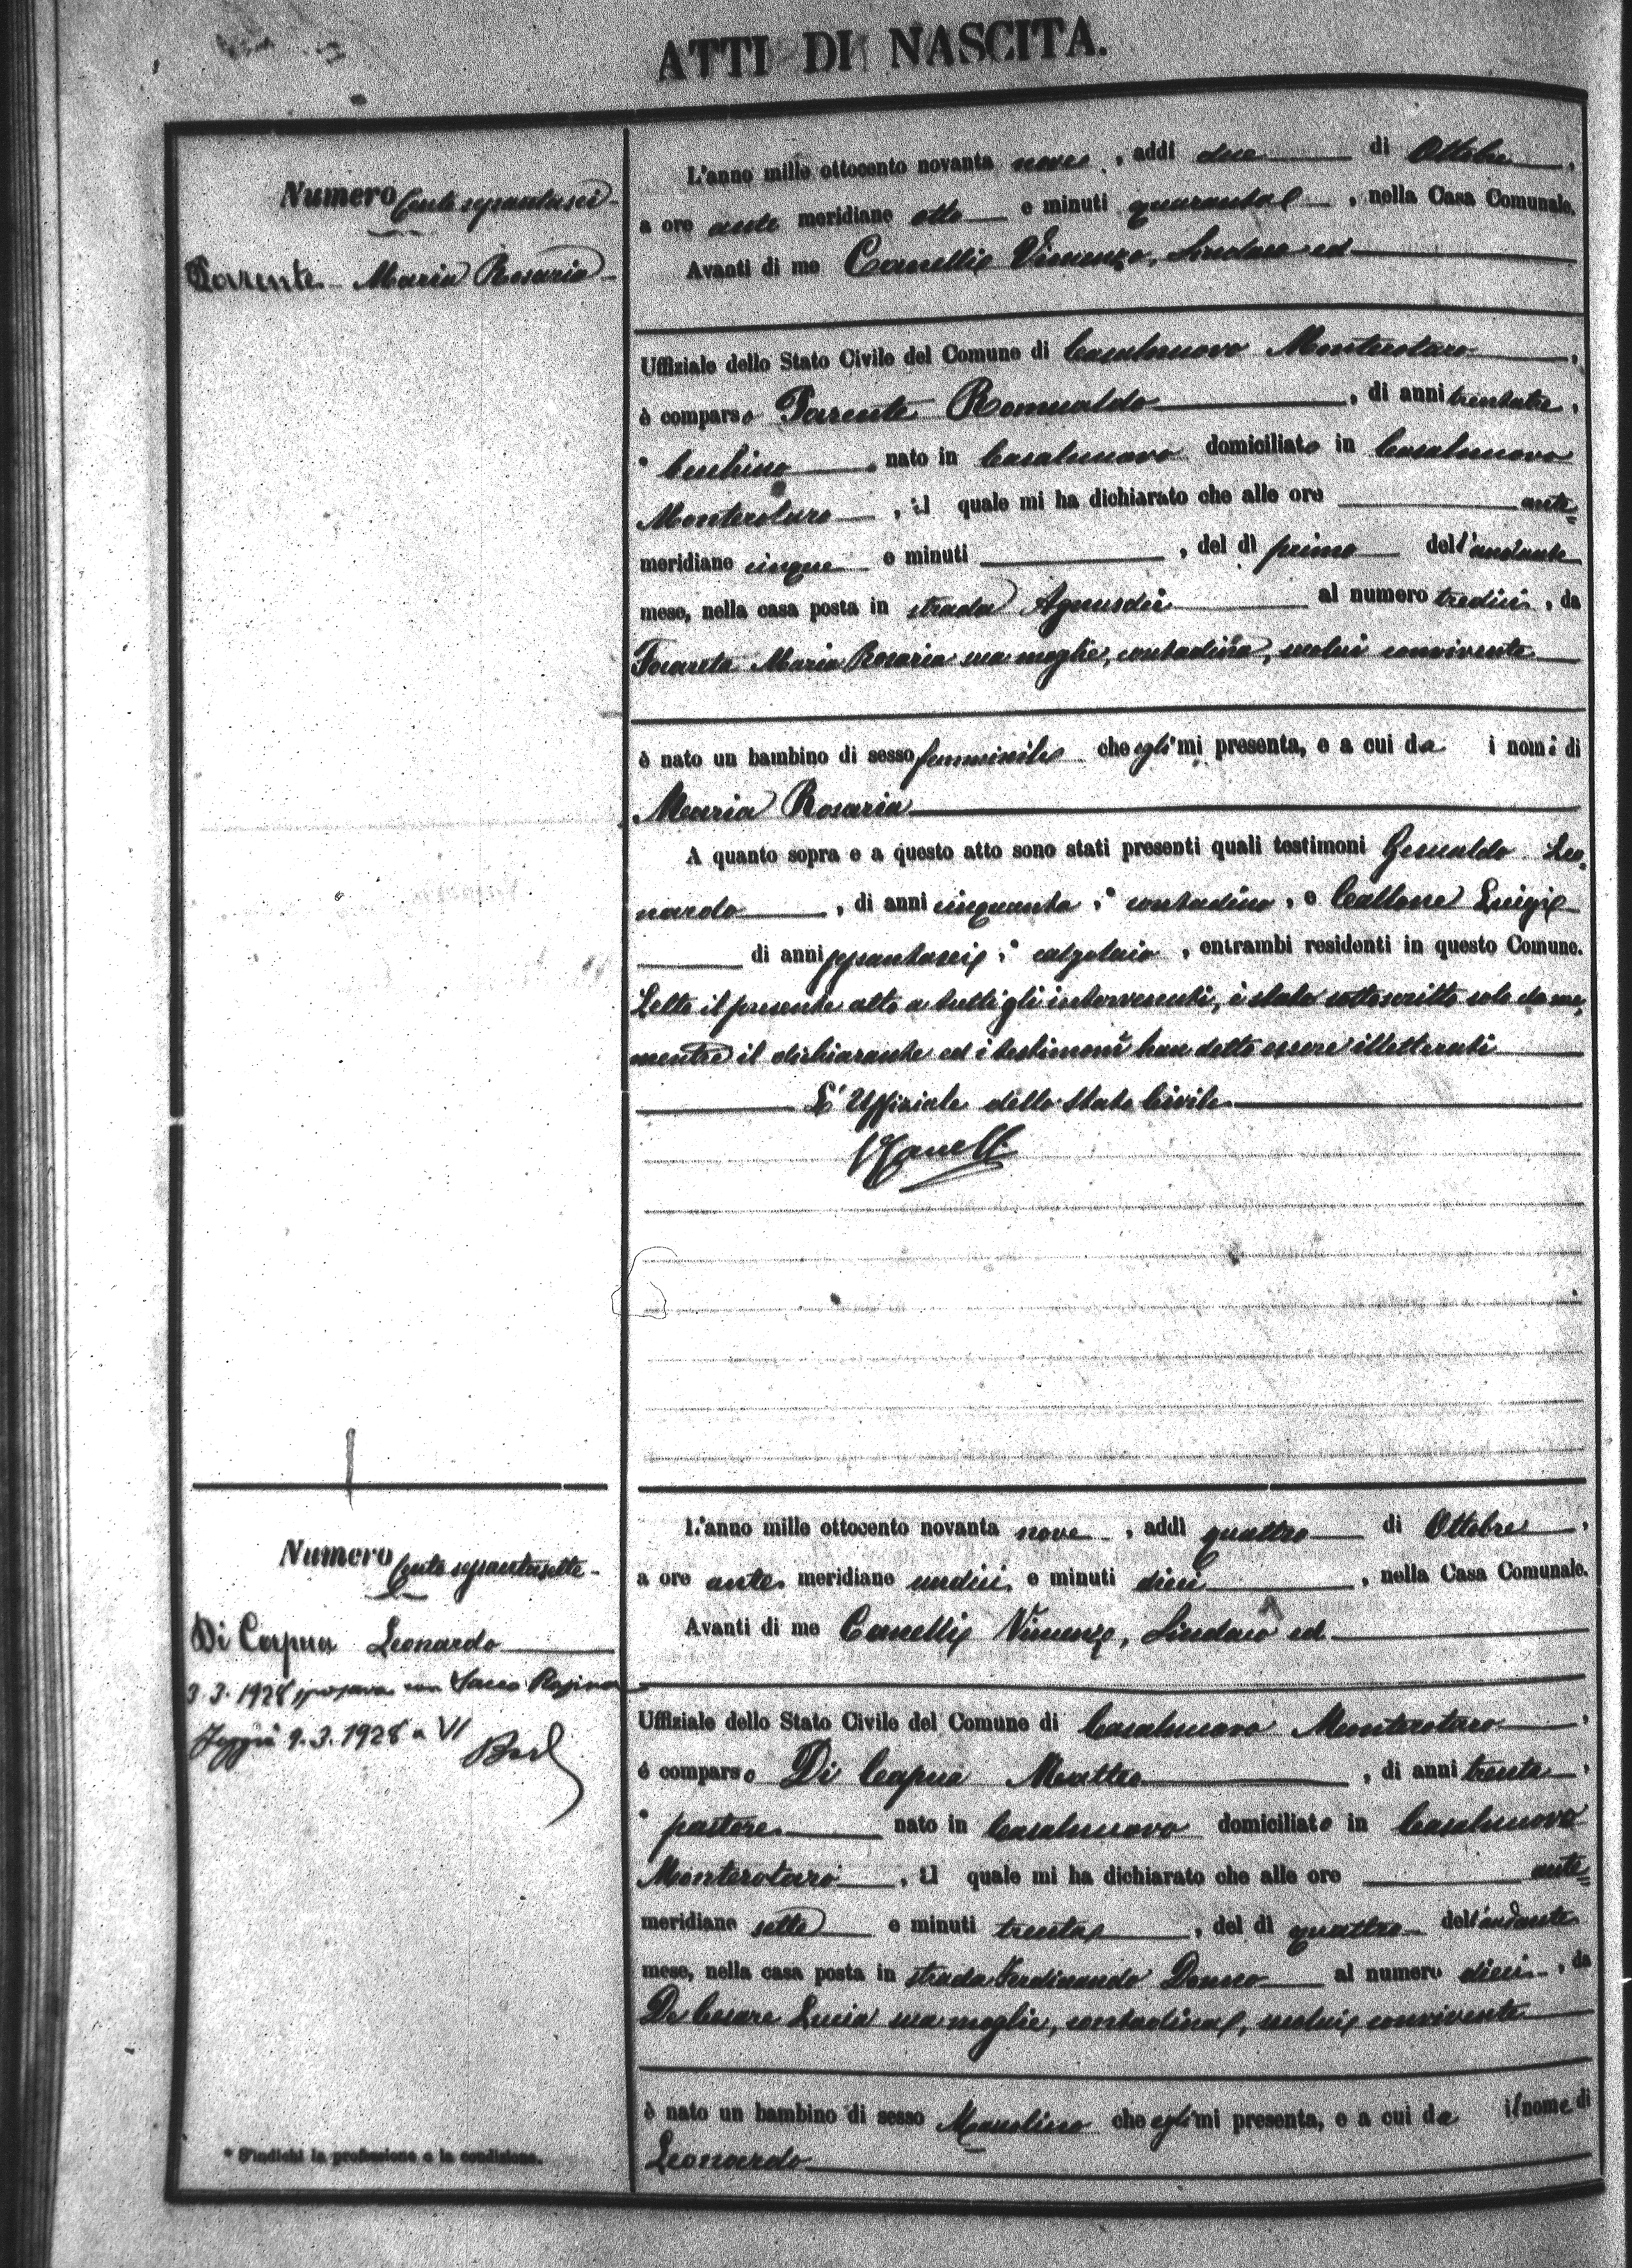 ATTI DI NASCITA.
Numero Centosessantasei
Parente Maria Rosaria
L'anno mille ottocento novanta nove, addì due di Ottobre,
a ore ante meridiane otto e minuti quaranta, nella Casa Comunale.
Avanti di me Canelli Vincenzo, Sindaco ed
Uffiziale dello Stato Civile del Comune di Casalnuovo Monterotaro,
è comparso Parente Romualdo, di anni trentatre,
* nato in Casalnuovo domiciliato in Casalnuovo
Monterotaro, il quale mi ha dichiarato che alle ore ante=
meridiane cinque e minuti , del dì primo dell'andante
mese, nella casa posta in strada Agnusdei al numero tredici, da
Maria Rosaria sua moglie, contadina, seco lui convivente
è nato un bambino di sesso femminile che egli mi presenta, e a cui da i nomi di
Maria Rosaria
A quanto sopra e a questo atto sono stati presenti quali testimoni Gesualdo Leo=
nardo, di anni cinquanta, * contadino, e Luigi
di anni sessantasei, * calzolaio, entrambi residenti in questo Comune.
Letto il presente atto a tutti gli intervenuti, è stato sottoscritto solo da me,
mentre il dichiarante ed i testimoni han detto essere illetterati
L'Uffiziale dello Stato Civile
VCanelli
Numero Centosessantasette
Di Capua Leonardo
3.3.1928 sposava con Sacco Rosina
Foggia 9.3.1928 a VI
L'anno mille ottocento novanta nove, addì quattro di Ottobre,
a ore ante meridiane undici e minuti dieci, nella Casa Comunale.
Avanti di me Canelli Vincenzo, Sindaco ed
Uffiziale dello Stato Civile del Comune di Casalnuovo Monterotaro,
è comparso Di Capua Matteo, di anni trenta,
* pastore nato in Casalnuovo domiciliato in Casalnuovo
Monterotaro, il quale mi ha dichiarato che alle ore ante=
meridiane sette e minuti trenta, del dì quattro dell'andante
mese, nella casa posta in strada Ferdinando Donno al numero dieci, da
De Cesare Lucia sua moglie, contadina, seco lui convivente
è nato un bambino di sesso Mascolino che egli mi presenta, e a cui da il nome di
Leonardo
* S'indichi la professione o la condizione.